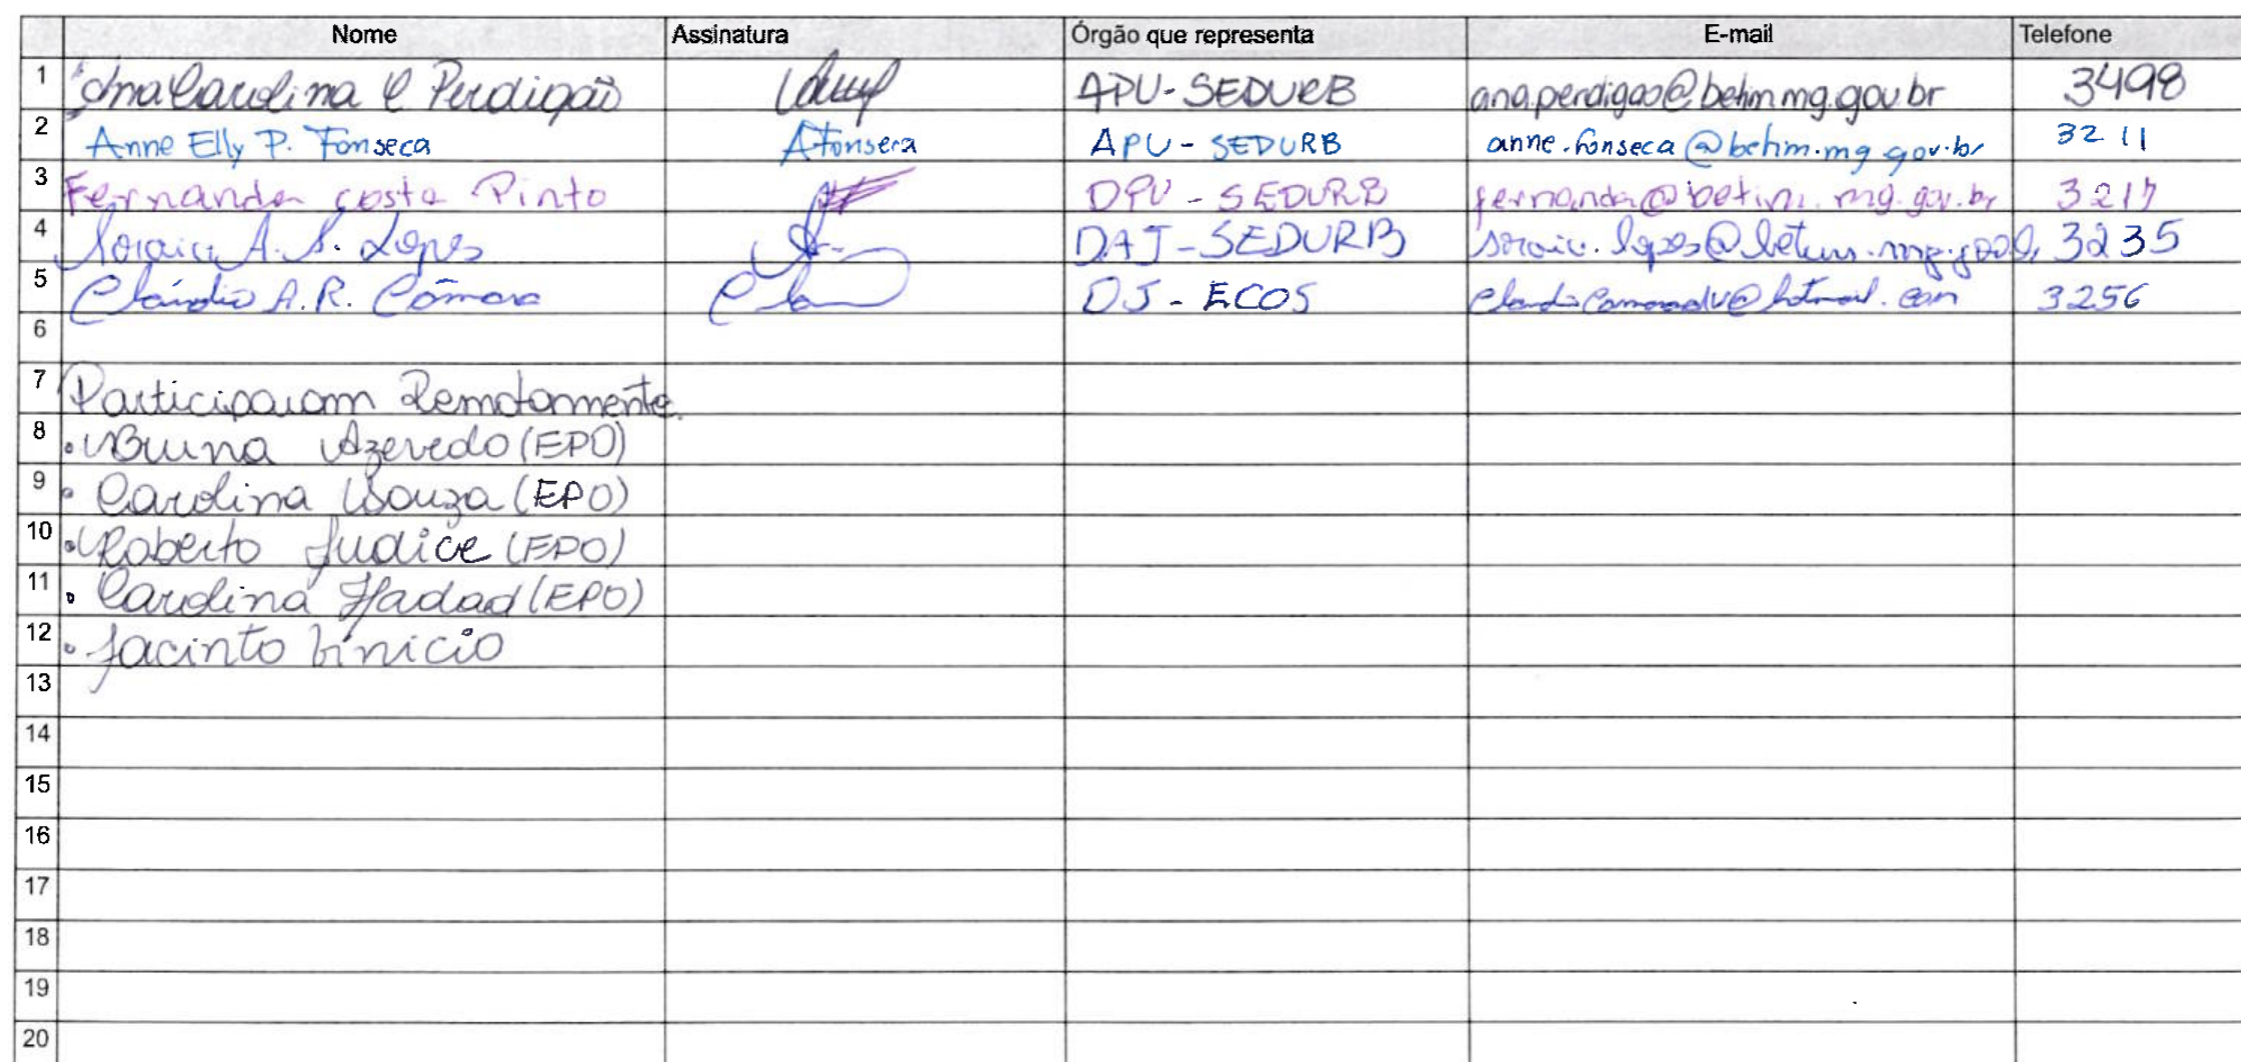 Nome Assinatura Órgão que representa E-mail Telefone
1 Ana Carolina C Perdigão APU-SEDURB ana.perdigao@betim.mg.gov.br 3498
2 Anne Elly P. Fonseca AFonseca APU - SEDURB anne.fonseca@betim.mg.gov.br 3211
3 Fernanda costa Pinto DPU - SEDURB fernanda@betim.mg.gov.br 3217
4 Soraia A. S. Lopes DAJ-SEDURB soraia.lopes@betim.mg.gov. 3235
5 Cláudio A.R. Câmara DJ - ECOS @hotmail.com 3256
6
7 Participaram Remotamente.
8 • Bruna Azevedo (EPO)
9 • Carolina Souza (EPO)
10 • Roberto Judice (EPO)
11 • Carolina Hadad (EPO)
12 • Jacinto Vinicio
13
14
15
16
17
18
19
20